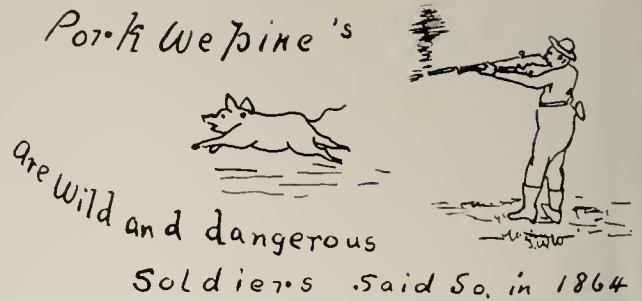 Pork We pine's
are Wild and dangerous
Soldiers Said So. in 1864